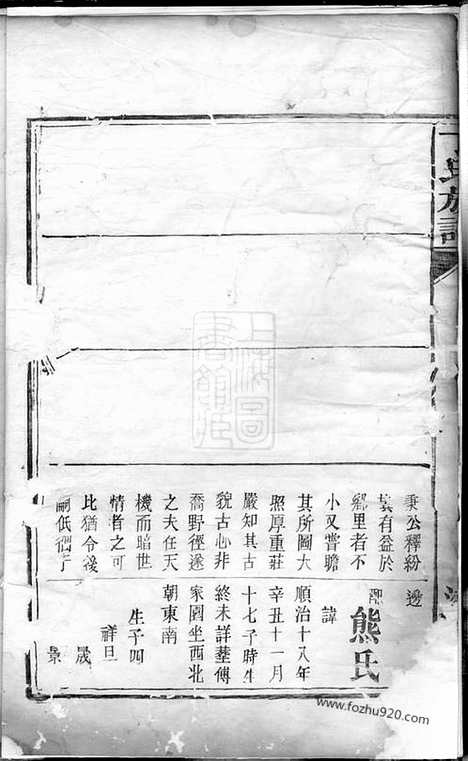 秉公釋紛
其有益於
鄉里者不
小又嘗瞻
其所圖大
照厚重莊
嚴知其古
貌古心非
喬野徑遂
之夫任天
機而暗世
情者之可
比猶令後
嗣低徊于
邊
熊氏
諱
順治十八年
辛丑十一月
十七子時生
終未詳塟傅
家園坐西北
朝東南
生子四
祥旦
晟
景
上海圖
書館藏
www.fozhu920.com